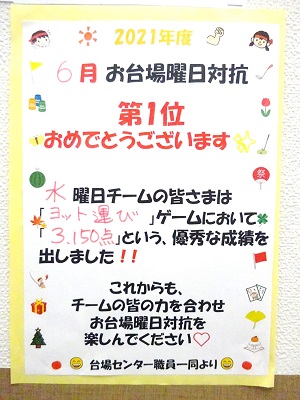 2021年度
6月 お台場曜日対抗
第1位
おめでとうございます
水 曜日チームの皆さまは
「ヨット運び」ゲームにおいて
「3.150点」という、優秀な成績を
出しました!!
これからも、
チームの皆の力を合わせ
お台場曜日対抗を
楽しんでください♡
台場センター職員一同より
祭